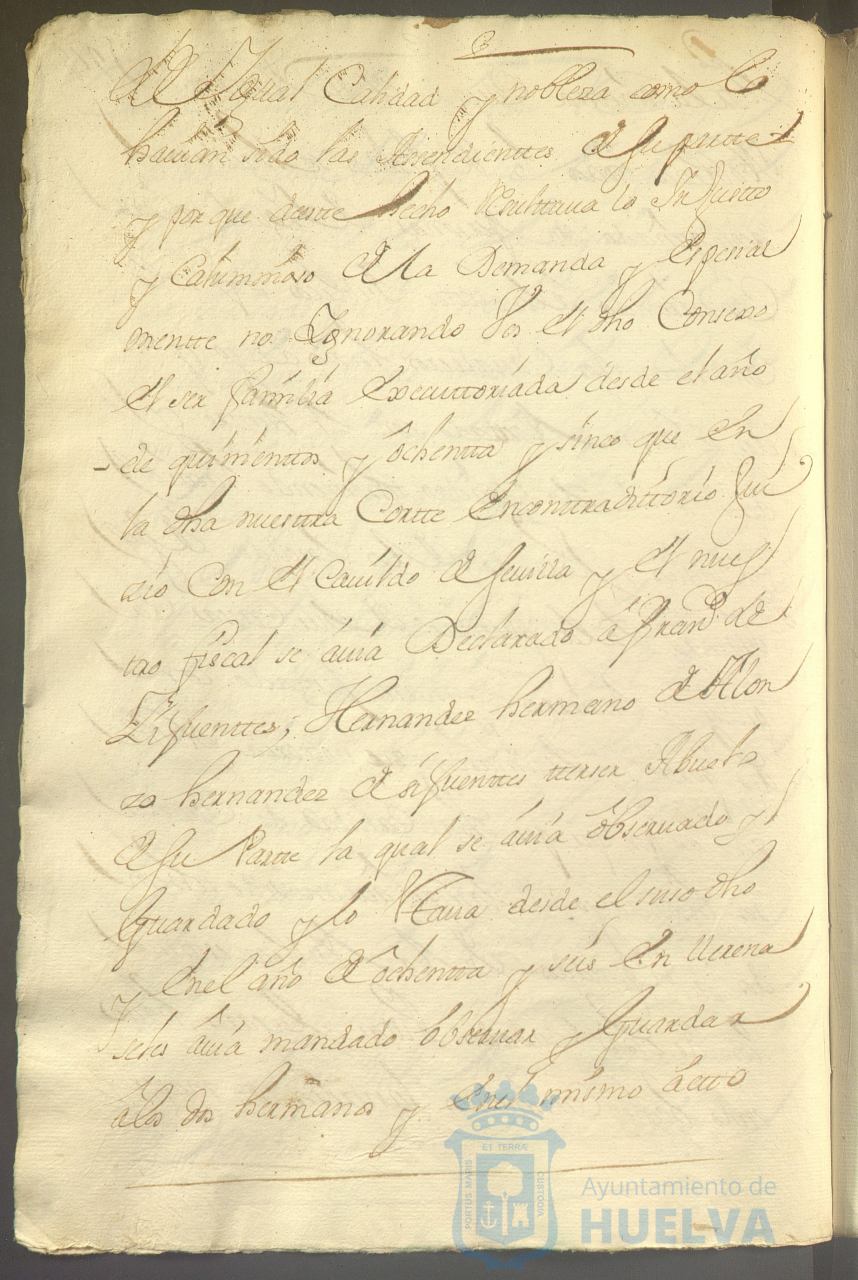 de Igual Calidad y nobleza como lo
hauian sido las Asendienttes de su partte
y por que destte hecho Resulttaua lo Injustto
y Calumnioso de la Demanda y Espesial
mentte no Ygnorando Vos el dho Consexo
el ser familia Executtoriada desde el año
de quinienttos y ôchentta y sinco que En
la dha nuesttra Cortte Encontradittorio Jui
zio Con el Cauildo de Seuilla y el nues
tro fiscal se áuia Declarado á Fran.co de
Zifuenttes, Hernandez hermano de Alon
zo hernandez de sifuenttes terser Abuelo
de su Partte la qual se áuia observado y
Guardado y lo estaua desde el suso dho
y En el año de ôchentta y seis En Uerena
se les áuia mandado obseruar y Guardar
álos dos hermanos y En el mismo actto
ET TERRÆ
PORTUS MARIS
CUSTODIA
Ayuntamiento de
HUELVA